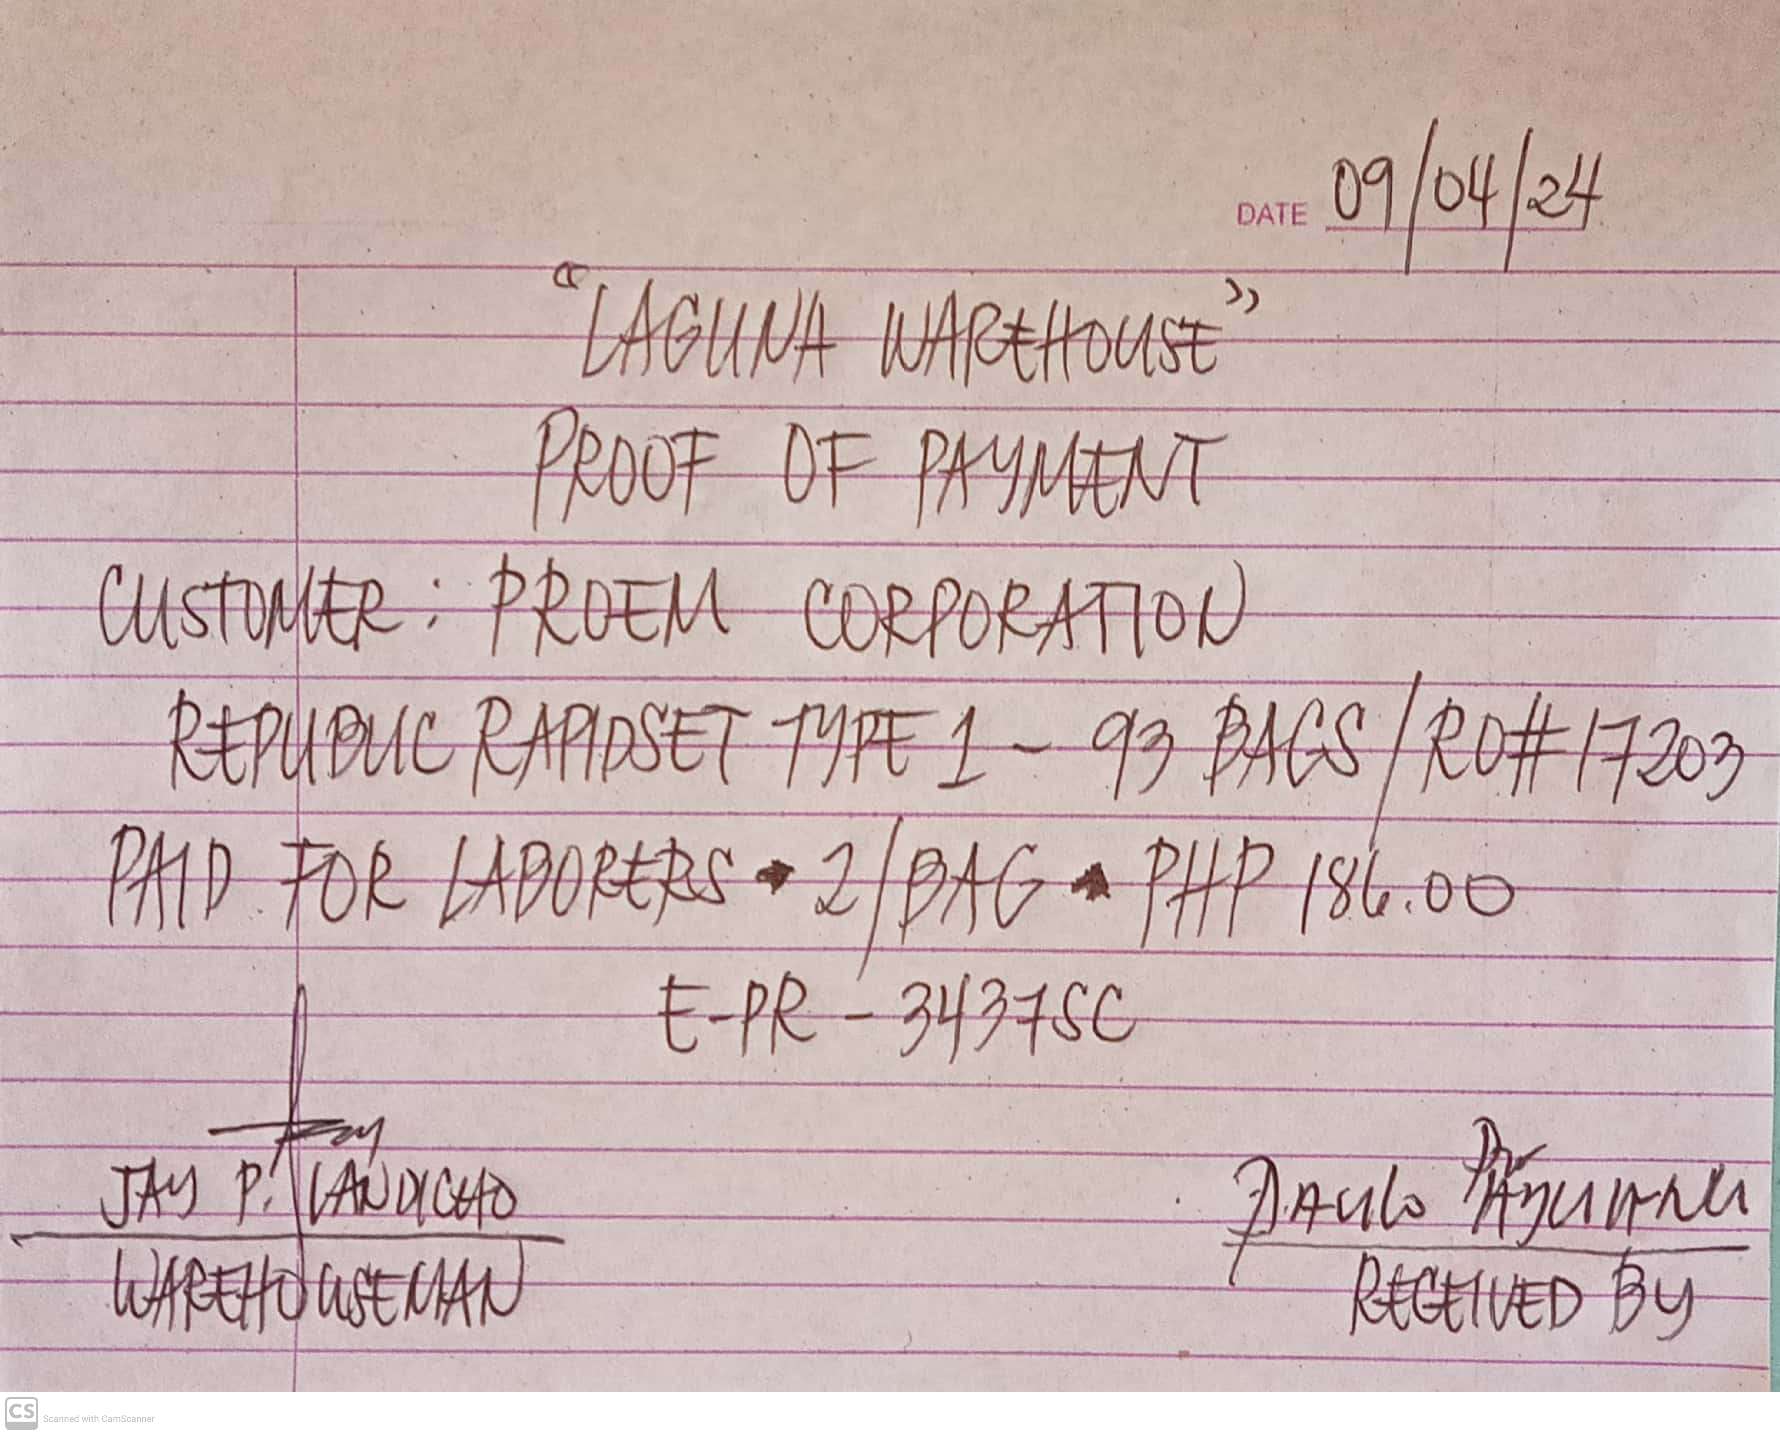 DATE 09/04/24
"LAGUNA WAREHOUSE"
PROOF OF PAYMENT
CUSTOMER: PROEM CORPORATION
REPUBLIC RAPIDSET TYPE 1 - 93 BAGS / RO# 17203
PAID FOR LABORERS • 2/BAG • PHP 186.00
E-PR - 3437SC
JAY P. LANDICHO
WAREHOUSEMAN
PAULO
RECEIVED BY
CS Scanned with CamScanner